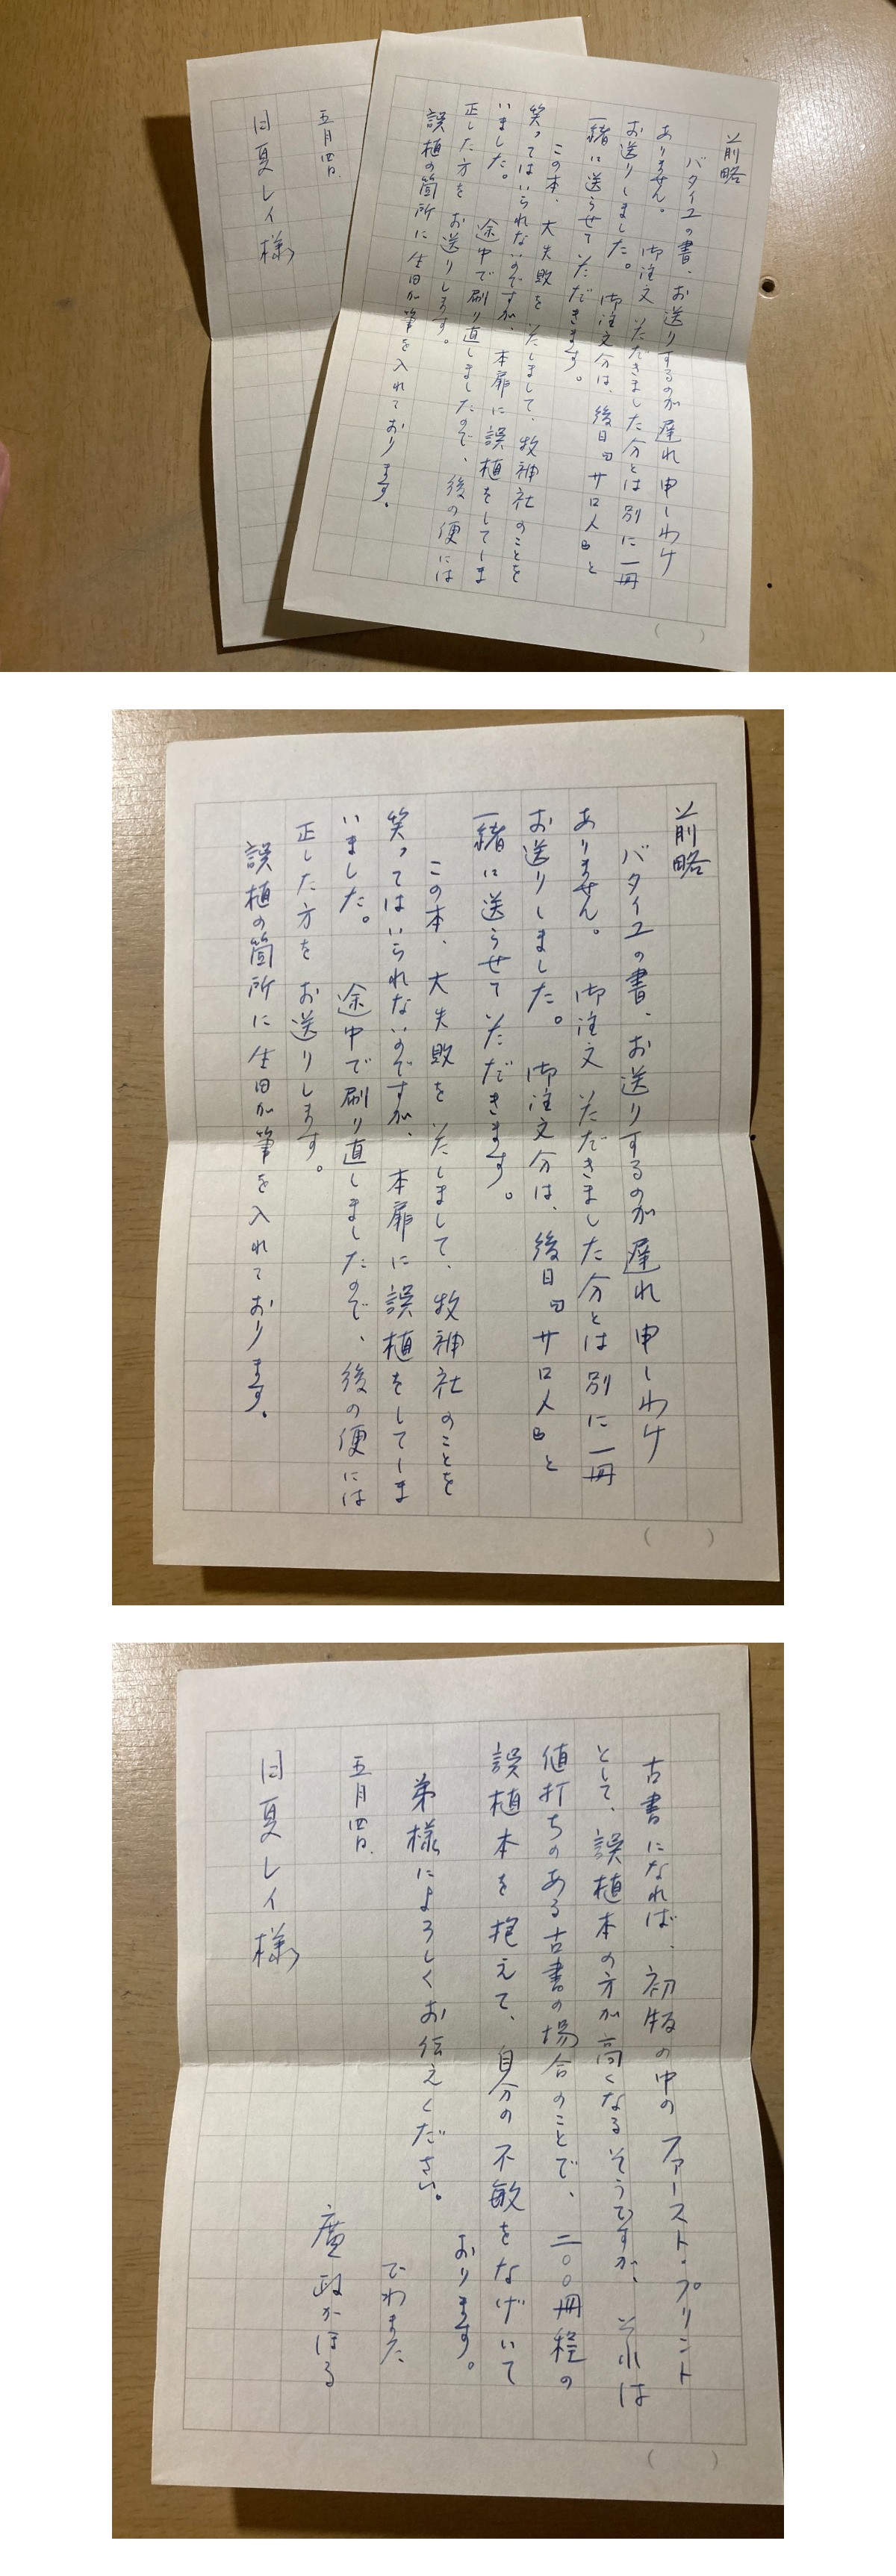 前略
バタイユの書、お送りするのが遅れ申しわけ
ありません。御注文いただきました分とは別に一冊
お送りしました。御注文分は、後日『サロメ』と
一緒に送らせていただきます。
この本、大失敗をいたしまして、牧神社のことを
笑ってはいられないのですが、本扉に誤植をしてしま
いました。途中で刷り直しましたので、後の便には
正した方をお送りします。
誤植の箇所に生田が筆を入れております。
五月四日
日夏レイ様
前略
バタイユの書、お送りするのが遅れ申しわけ
ありません。御注文いただきました分とは別に一冊
お送りしました。御注文分は、後日『サロメ』と
一緒に送らせていただきます。
この本、大失敗をいたしまして、牧神社のことを
笑ってはいられないのですが、本扉に誤植をしてしま
いました。途中で刷り直しましたので、後の便には
正した方をお送りします。
誤植の箇所に生田が筆を入れております。
古書になれば、初版の中のファースト・プリント
として、誤植本の方が高くなるそうですが、それは
値打ちのある古書の場合のことで、二〇〇冊程の
誤植本を抱えて、自分の不敏をなげいて
おります。
弟様によろしくお伝えください。
でわまた
五月四日
廣政かほる
日夏レイ様